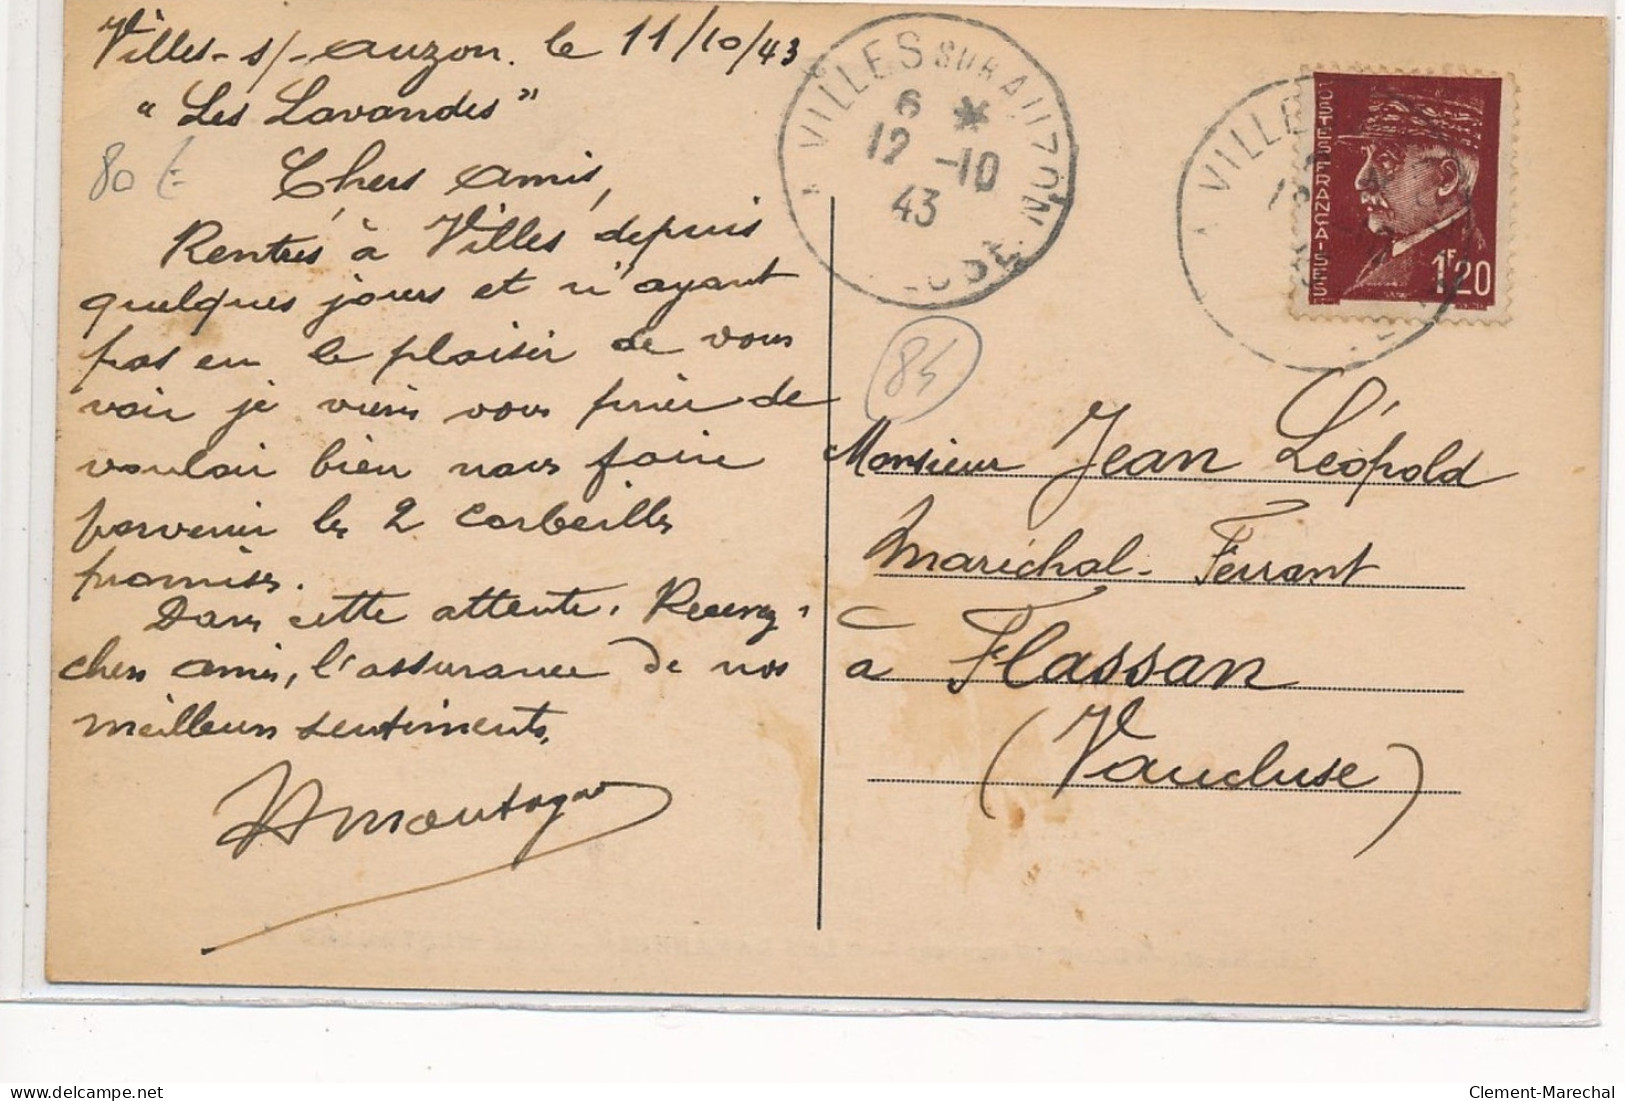 Villes-s/-Auzon. le 11/10/43
"Les Lavandes"
80 €
Chers amis,
Rentrés à Villes depuis
quelques jours et n'ayant
pas eu le plaisir de vous
voir je viens vous prier de
vouloir bien nous faire
parvenir les 2 corbeilles
promises.
Dans cette attente. Recevez,
chers amis, l'assurance de nos
meilleurs sentiments.
VILLES SUR AUZON
6 *
12 -10
43
VILLE
POSTES FRANÇAISES
1F20
84
Monsieur Jean Léopold
Maréchal-Ferrant
à Flassan
(Vaucluse)
Clement-Marechal